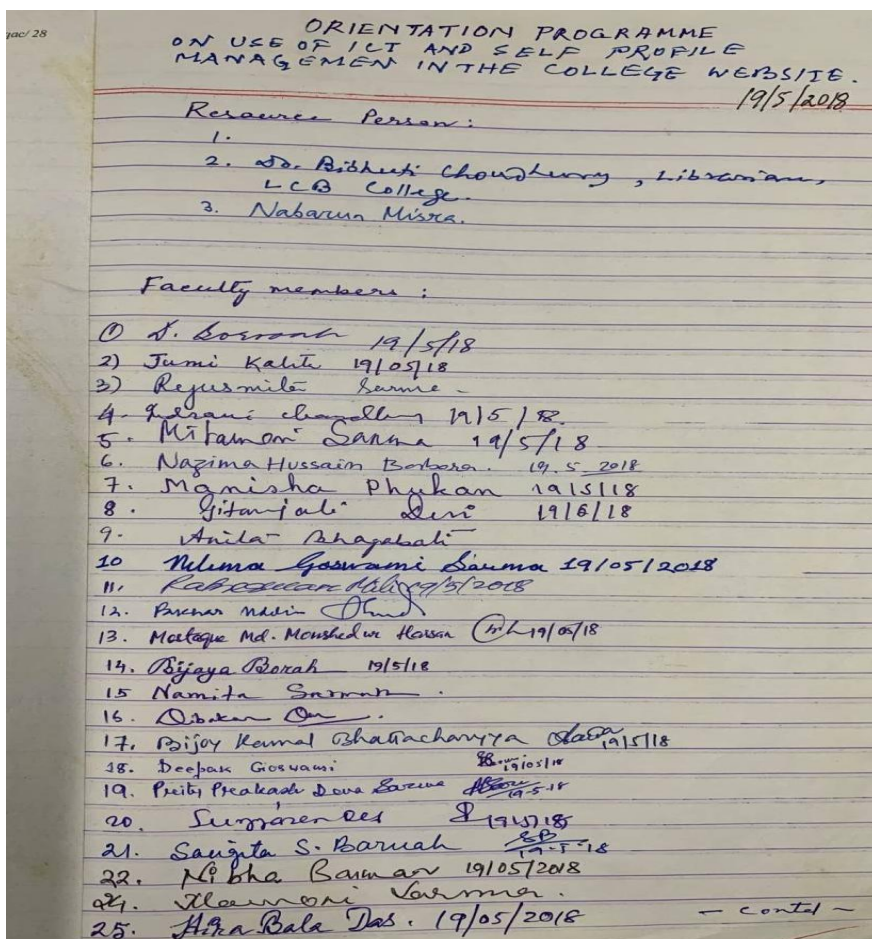 gac/ 28
ORIENTATION PROGRAMME
ON USE OF ICT AND SELF PROFILE
MANAGEMEN IN THE COLLEGE WEBSITE.
19/5/2018
Resource Person:
1.
2. Dr. Bibhuti Choudhury, Librarian,
LCB College.
3. Nabarun Misra.
Faculty members :
① 19/5/18
2) Jumi Kalita 19/05/18
3) Rejusmita Sarma -
4. Indrani Choudhury 19/5/18.
5. Mitamoni Sarma 19/5/18
6. Nazima Hussain Borbora. 19.5.2018
7. Manisha Phukan 19/5/18
8. Gitanjali Devi 19/6/18
9. Anita Bhagabati
10 Nilima Goswami Sarma 19/05/2018
11. 19/5/2018
12.
13. Md. Monshedur Hassan 19/05/18
14. Bijaya Borah 19/5/18
15 Namita
16.
17. Bijoy Kamal Bhattacharyya 19/5/18
18. Deepak Goswami 19/05/18
19. Prakash Deva Sarma 19-5-18
20. 19/5/18
21. Sangita S. Baruah SB 19-5-18
22. Nibha Barman 19/05/2018
24. Varma.
25. Hira Bala Das. 19/05/2018
- contd -